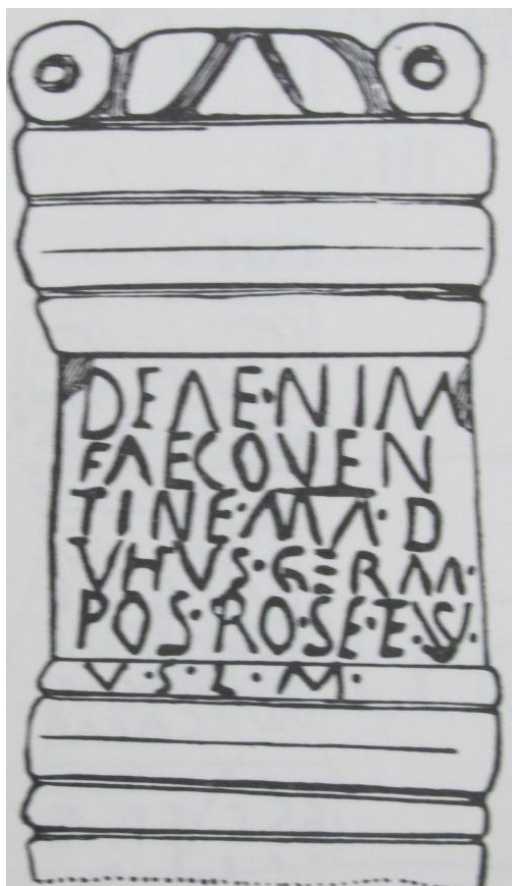 DEAE·NIM
FAECOVEN
TINE·MA·D
VHVS·GERM·
POS·RO·SE·E·SV·
V·S·L·M·